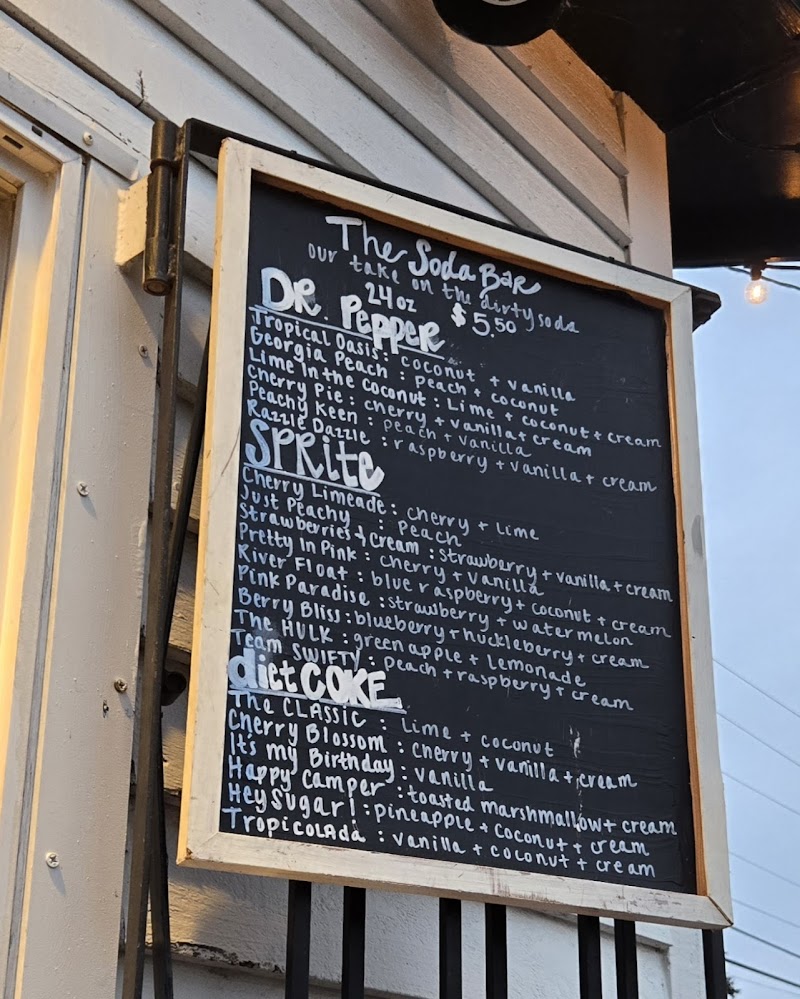 The Soda Bar
our take on the dirty soda
24oz $5.50
DR. Pepper
Tropical Oasis: coconut + vanilla
Georgia Peach : peach + coconut
Lime In the Coconut : Lime + coconut + cream
Cherry Pie : cherry + vanilla + cream
Peachy Keen : peach + vanilla
Razzle Dazzle : raspberry + vanilla + cream
SPRite
Cherry Limeade : cherry + Lime
Just Peachy : peach
Strawberries & Cream : strawberry + vanilla + cream
Pretty In Pink : cherry + vanilla
River Float : blue raspberry + coconut + cream
Pink Paradise : strawberry + watermelon
Berry Bliss : blueberry + huckleberry + cream
The HULK : green apple + Lemonade
Team SWIFTY : peach + raspberry + cream
diet COKE
The CLASSIC : Lime + coconut
Cherry Blossom : cherry + vanilla + cream
It's my Birthday : vanilla
Happy Camper : toasted marshmallow + cream
Hey Sugar! : pineapple + coconut + cream
TropicolAda : vanilla + coconut + cream